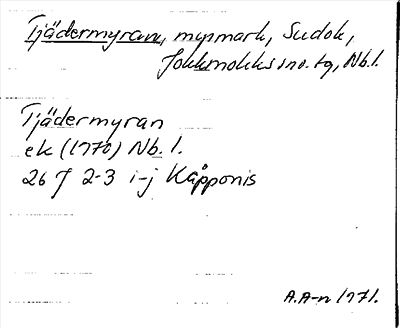 Tjädermyran, myrmark, Sudok,
Jokkmokks sno. tg, Nb.l.
Tjädermyran
ek (1970) Nb. l.
26 J 2-3 i-j Kåpponis
A.A-n 1971.